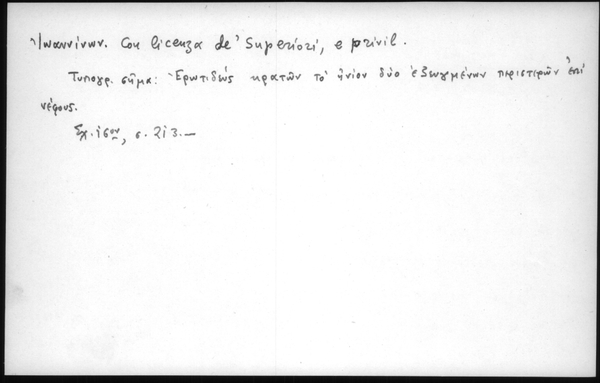 Ἰωαννίνων. Con licenza de' Superiori, e privil.
Τυπογρ. σῆμα: Ἐρωτιδεύς κρατῶν τό ἡνίον δύο ἐζωγμένων περιστερῶν ἐπί
νέφους.
Σχ. ισον, σ. 213.—